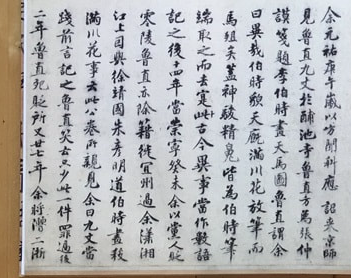 余元祐庚午歲以方聞科應詔來京師
見魯直九丈於酺池寺魯直方為張仲
謨箋題李伯時畫天馬圖魯直謂余
曰異哉伯時貌天厩滿川花放筆而
馬殂矣蓋神駿精魄皆為伯時筆
端取之而去寔古今異事當作數語
記之後十四年當崇寧癸未余以黨人貶
零陵魯直亦除籍徙宜州過余瀟湘
江上因與徐靖國朱彥明道伯時畫殺
滿川花事云此公卷所親見余曰九丈當
踐前言記之魯直笑云只少此一件罪過後
二年魯直死貶所又廿七年余將漕二浙